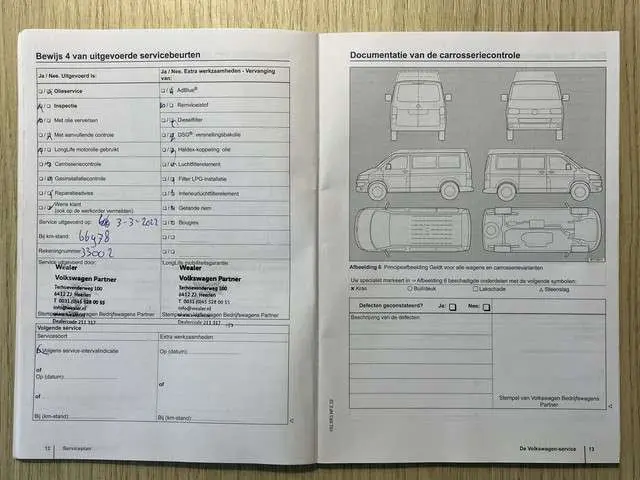 Bewijs 4 van uitgevoerde servicebeurten
Ja / Nee. Uitgevoerd is:
Olieservice
Inspectie
Met olie verversen
Met aanvullende controle
LongLife motorolie gebruikt
Carrosseriecontrole
Gasinstallatiecontrole
Reparatieadvies
Wens klant
(ook op de werkorder vermelden)
Ja / Nee. Extra werkzaamheden - Vervanging
van:
AdBlue®
Remvloeistof
Dieselfilter
DSG® versnellingsbakolie
Haldex-koppeling: olie
Luchtfilterelement
Filter LPG-installatie
Interieurluchtfilterelement
Getande riem
Bougies
Service uitgevoerd op: 3-3-2022
Bij km-stand: 66478
Rekeningnummer: 33002
Service uitgevoerd door:
LongLife mobiliteitsgarantie:
Wealer
Volkswagen Partner
6412 ZJ Heerlen
Wealer
Volkswagen Partner
6412 ZJ Heerlen
Stempel van Volkswagen Bedrijfswagens Partner
Stempel van Volkswagen Bedrijfswagens Partner
Volgende service
Servicesoort
Volgens service-intervalindicatie
of
Op (datum):
of
Bij (km-stand):
Extra werkzaamheden
Op (datum):
of
Bij (km-stand):
12 Serviceplan
Documentatie van de carrosseriecontrole
Afbeelding 6 Principeafbeelding: Geldt voor alle wagens en carrosserievarianten
Uw specialist markeert in ⇒ Afbeelding 6 beschadigde onderdelen met de volgende symbolen:
× Kras ○ Buil/deuk □ Lakschade △ Steenslag
Defecten geconstateerd? Ja: Nee:
Beschrijving van de defecten:
Stempel van Volkswagen Bedrijfswagens
Partner
De Volkswagen-service 13